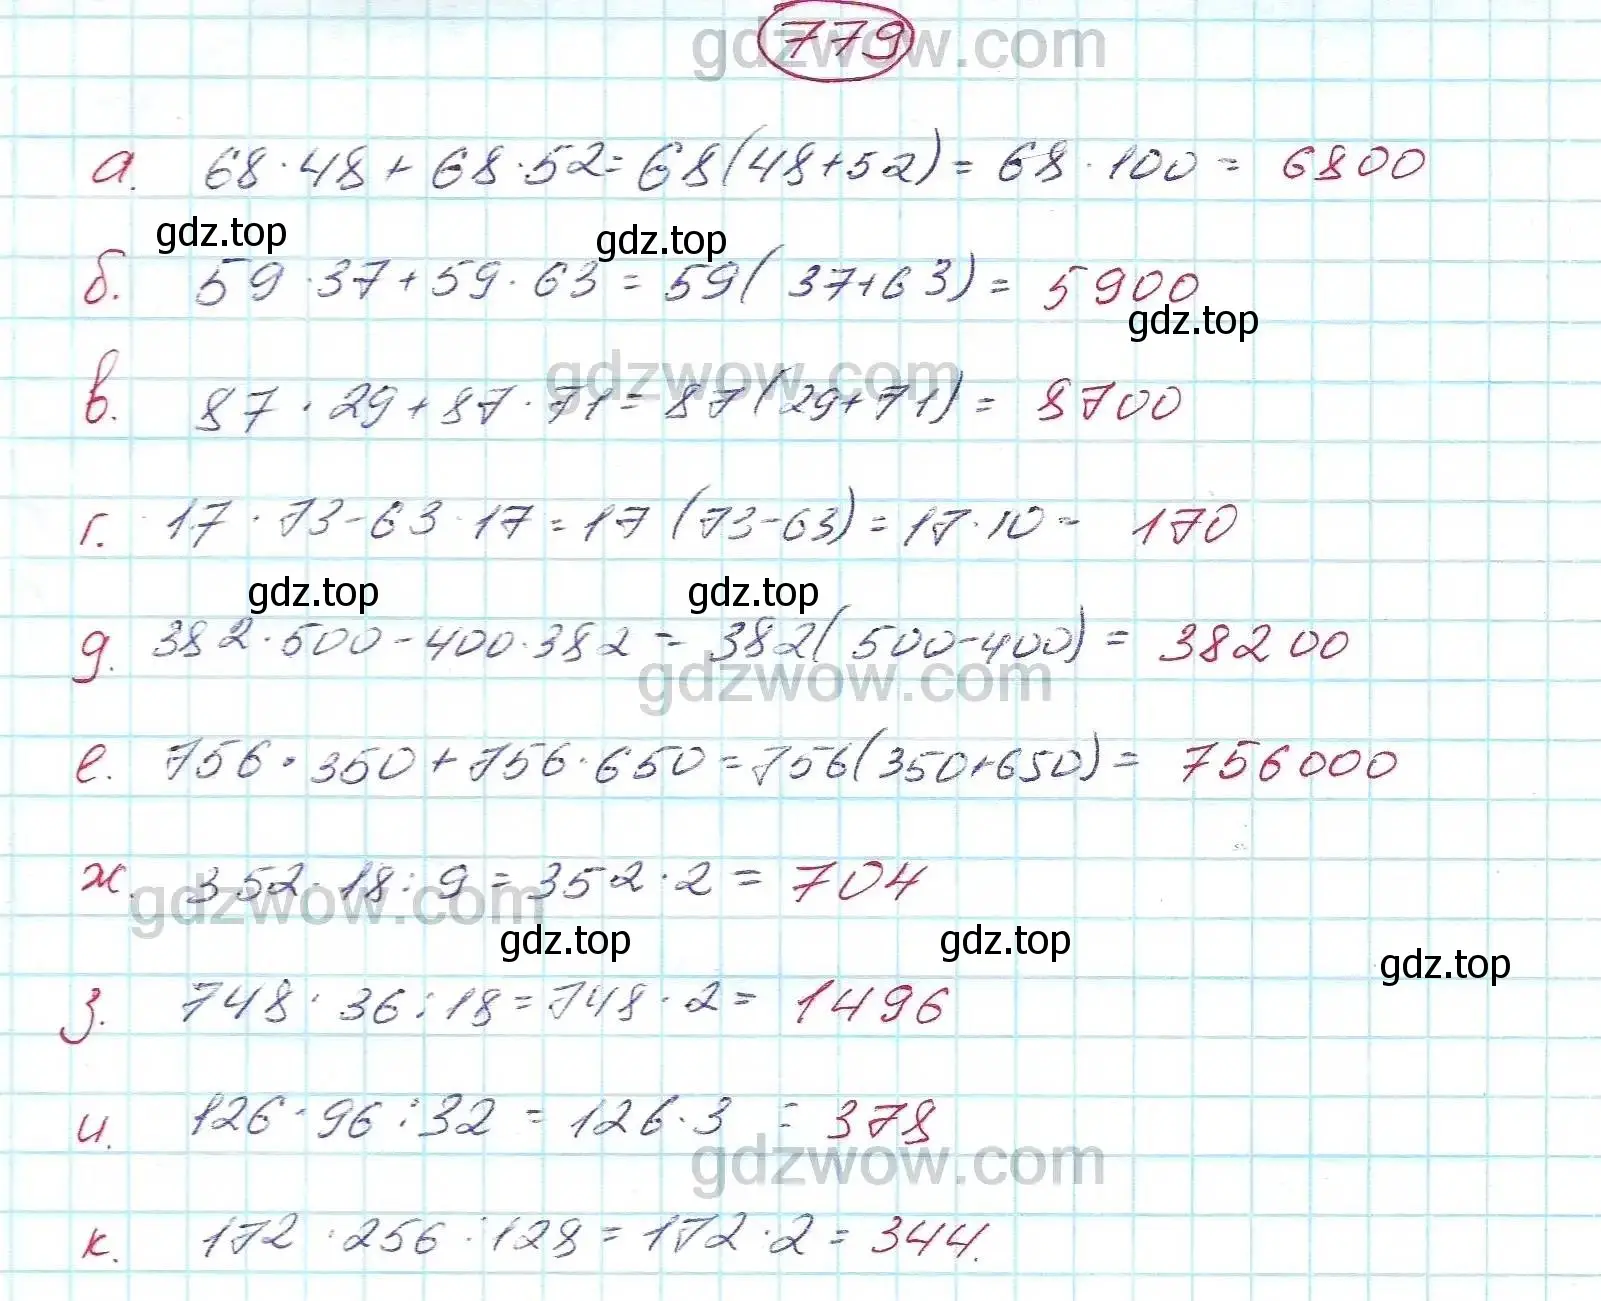 779
gdzwow.com
а. 68·48+68·52=68(48+52)=68·100=6800
gdz.top gdz.top
б. 59·37+59·63=59(37+63)=5900
gdz.top
gdzwow.com
в. 87·29+87·71=87(29+71)=8700
г. 17·73-63·17=17(73-63)=17·10=170
gdz.top gdz.top
д. 382·500-400·382=382(500-400)=38200
gdzwow.com
е. 756·350+756·650=756(350+650)=756000
ж. 352·18:9=352·2=704
gdzwow.com
gdz.top gdz.top gdz.top
з. 748·36:18=748·2=1496
и. 126·96:32=126·3=378
gdzwow.com
к. 172·256:128=172·2=344.